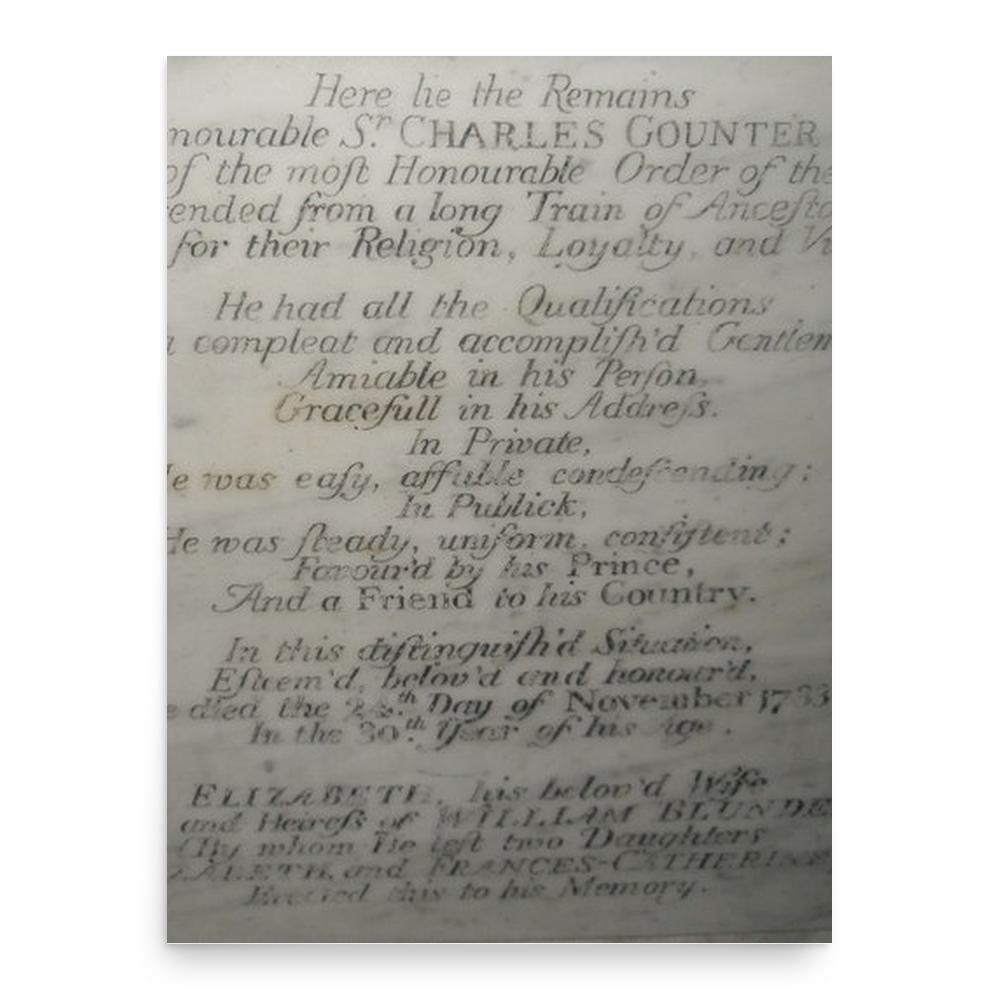 Here lie the Remains
nourable Sr. CHARLES GOUNTER
of the moſt Honourable Order of the
ended from a long Train of Anceſto
for their Religion, Loyalty, and Vi
He had all the Qualifications
a compleat and accompliſh'd Gentlem
Amiable in his Perſon,
Gracefull in his Addreſs.
In Private,
He was eaſy, affable condeſcending;
In Publick,
He was ſteady, uniform, conſiſtent;
Favour'd by his Prince,
And a Friend to his Country.
In this diſtinguiſh'd Situation,
Eſteem'd, belov'd and honour'd,
e died the th Day of November 1733
In the 30th Year of his Age.
ELIZABETH, his belov'd Wife
and Heireſs of WILLIAM BLUNDE
(By whom He left two Daughters
ZABETH, and FRANCES-CATHERINE
Erected this to his Memory.